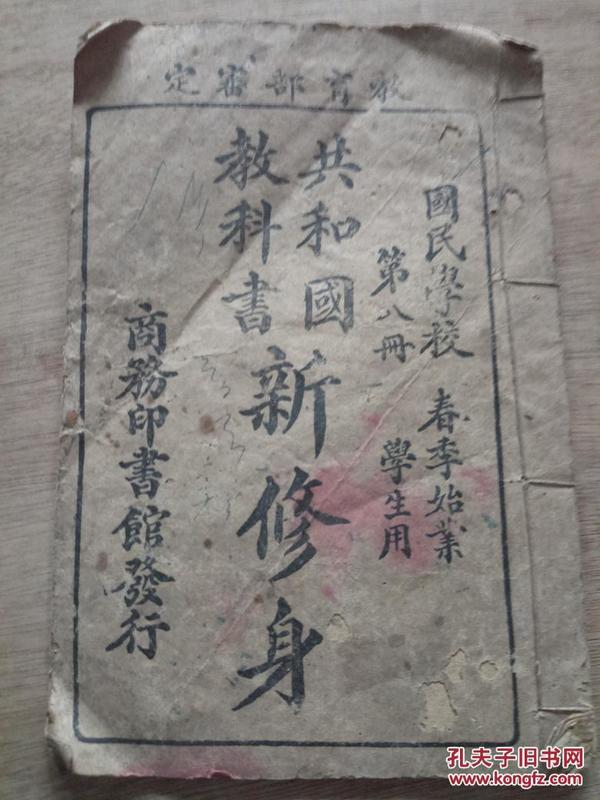 教育部審定
國民學校 春季始業
第八冊 學生用
共和國
教科書
新修身
商務印書館發行
孔夫子旧书网
www.kongfz.com